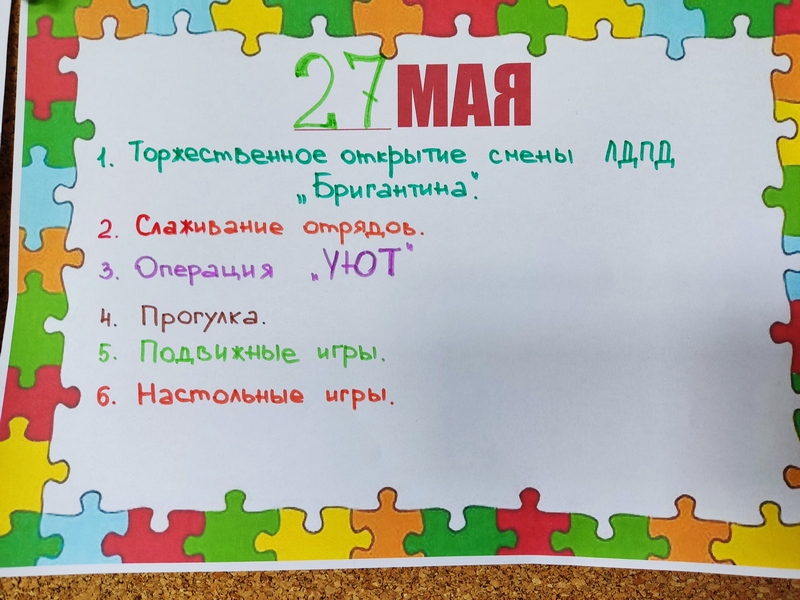 27 МАЯ
1. Торжественное открытие смены ЛДПД
„Бригантина".
2. Слаживание отрядов.
3. Операция „УЮТ"
4. Прогулка.
5. Подвижные игры.
6. Настольные игры.